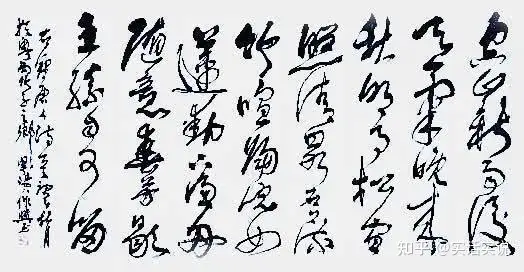 空山新雨後
天氣晚來
秋明月松間
照清泉石上流
竹喧歸浣女
蓮動下漁舟
随意春芳歇
王孫自可留
知乎 @实话实说